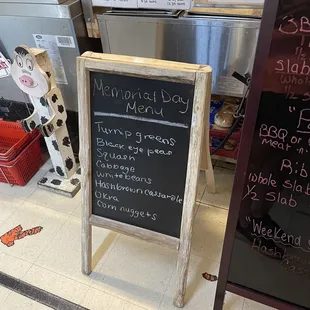 Memorial Day
Menu
Turnip greens
Black eye peas
Squash
Cabbage
White beans
Hashbrown casserole
Okra
Corn nuggets
BBQ
slab
whole
BBQ
meat
Rib
whole slab
1/2 slab
"Weekend